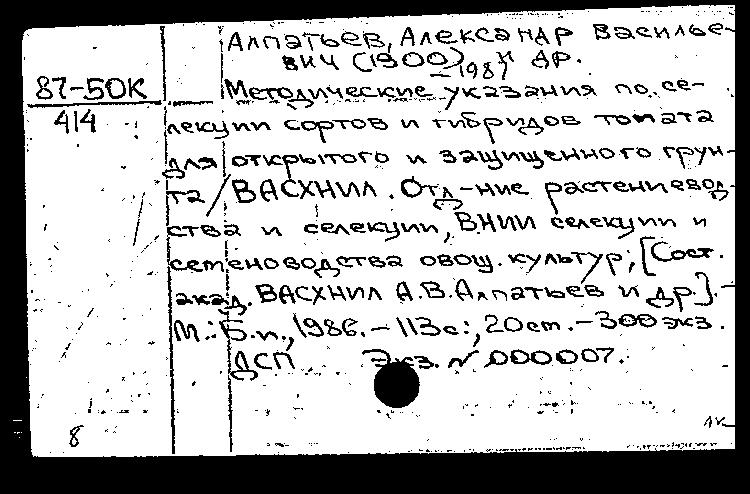 Алпатьев, Александр Василье-
вич (1900 - 1987) и др.
87-50К
Методические указания по се-
414
лекции сортов и гибридов томата
для открытого и защищенного грун-
та / ВАСХНИЛ. Отд-ние растениевод-
ства и селекции, ВНИИ селекции и
семеноводства овощ. культур; [Сост.
акад. ВАСХНИЛ А.В.Алпатьев и др.]. -
М.: Б.и., 1986. - 113с.; 20см. - 300экз.
ДСП Экз. № 000007.
8